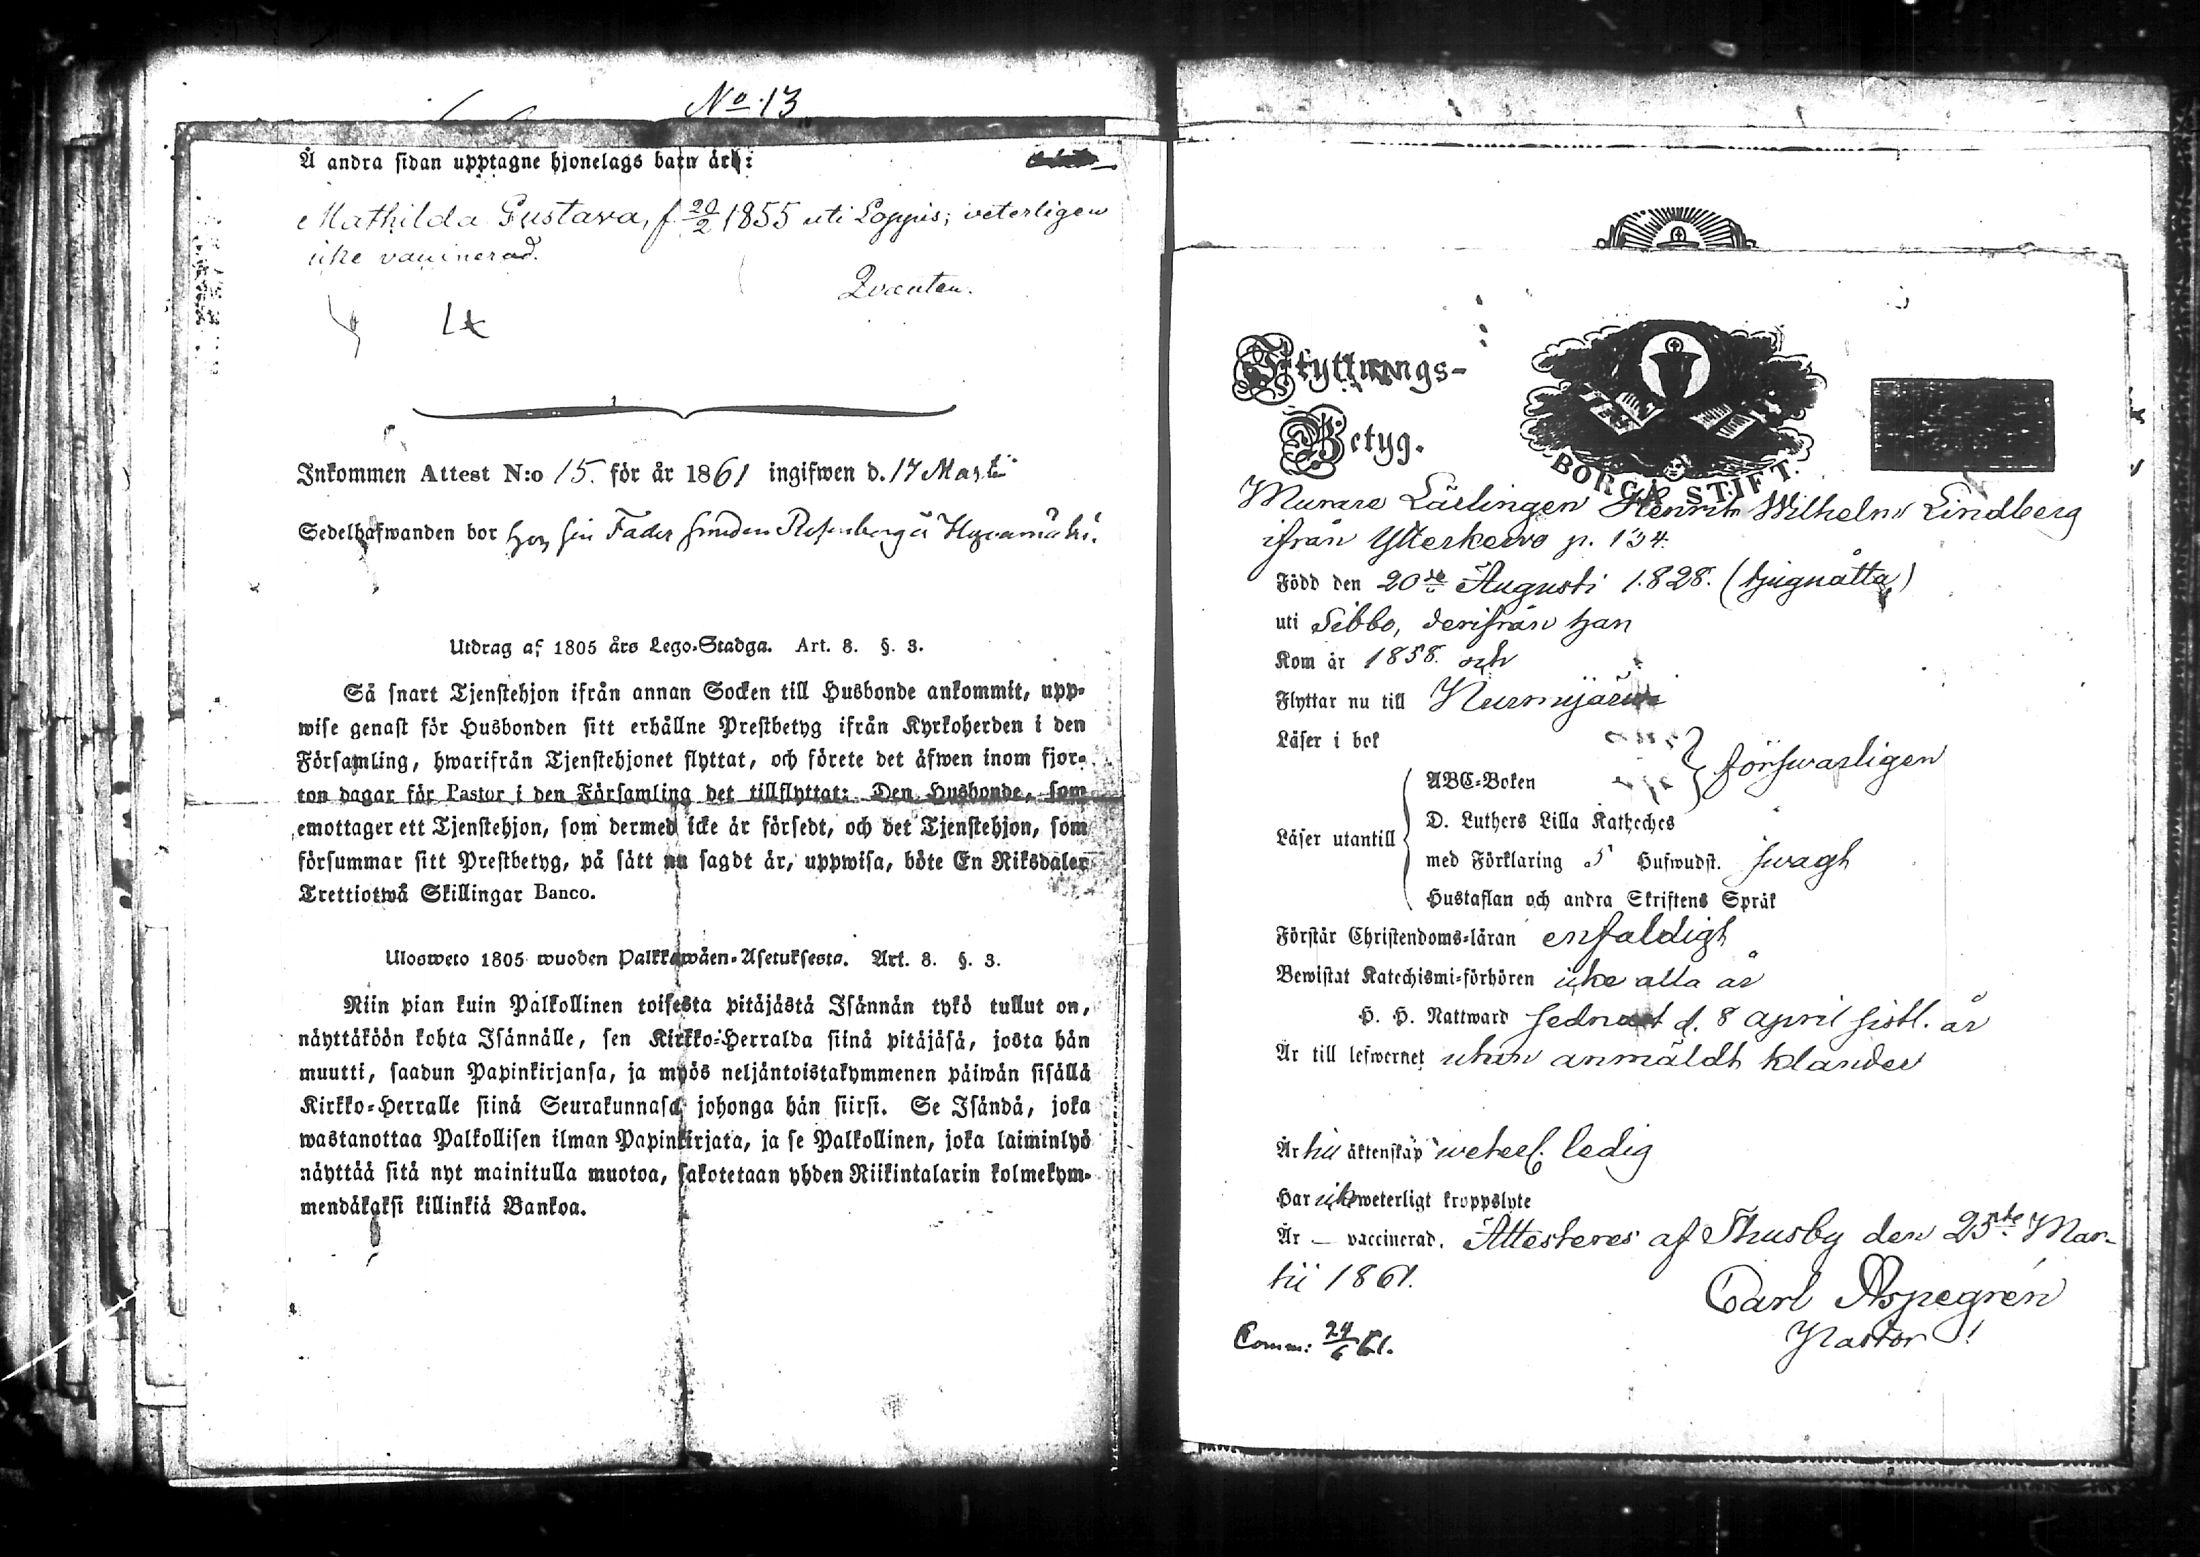 No 13
Å andra sidan upptagne hjonelags barn är:
Mathilda Gustava, f. 20/2 1855 uti Loppis; veterligen
icke vaccinerad.
Qvanten.
Inkommen Attest N:o 15. för år 1861 ingifwen d. 17 Martii
Sedelhafwanden bor hos sin Fader Smeden Rosenberg i Hyvamäki.
Utdrag af 1805 års Lego-Stadga. Art. 8. §. 3.
Så snart Tjenstehjon ifrån annan Socken till Husbonde ankommit, upp-
wise genast för Husbonden sitt erhållne Prestbetyg ifrån Kyrkoherden i den
Församling, hwarifrån Tjenstehjonet flyttat, och förete det äfwen inom fjor-
ton dagar för Pastor i den Församling det tillflyttat: Den Husbonde, som
emottager ett Tjenstehjon, som dermed icke är försedt, och det Tjenstehjon, som
försummar sitt Prestbetyg, på sätt nu sagdt är, uppwisa, böte En Riksdaler
Trettiotwå Skillingar Banco.
Ulosweto 1805 wuoden Palkkawäen-Asetuksesta. Art. 8. §. 3.
Niin pian kuin Palkollinen toisesta pitäjästä Isännän tykö tullut on,
näyttäköön kohta Isännälle, sen Kirkko-Herralda siinä pitäjäsä, josta hän
muutti, saadun Papinkirjansa, ja myös neljäntoistakymmenen päiwän sisällä
Kirkko-Herralle siinä Seurakunnasa johonga hän siirsi. Se Isändä, joka
wastanottaa Palkollisen ilman Papinkirjata, ja se Palkollinen, joka laiminlyö
näyttää sitä nyt mainitulla muotoa, sakotetaan yhden Riikintalarin kolmekym-
mendäkaksi killinkiä Bankoa.
Flyttnings-
Betyg.
BORGÅ STIFT.
Murare Lärlingen Henrik Wilhelm Lindberg
ifrån Ytterkervo p. 134.
Född den 20de Augusti 1828. (tjuguåtta)
uti Sibbo, derifrån han
Kom år 1858. och
Flyttar nu till Nurmijärvi
Läser i bok
ABC-Boken försvarligen
D. Luthers Lilla Katheches
Läser utantill
med Förklaring 5 Hufwudst. svagt
Hustaflan och andra Skriftens Språk
Förstår Christendoms-läran enfaldigt
Bewistat Katechismi-förhören icke alla år
H. H. Nattward sednast d. 8 april sistl. år
Är till lefwernet utan anmäldt klander
Är till äktenskap veterl. ledig
Har icke weterligt kroppslyte
Är — vaccinerad. Attesteres af Thusby den 25te Mar-
tii 1861.
Carl Aspegrén
Pastor
Comm: 24/6 61.